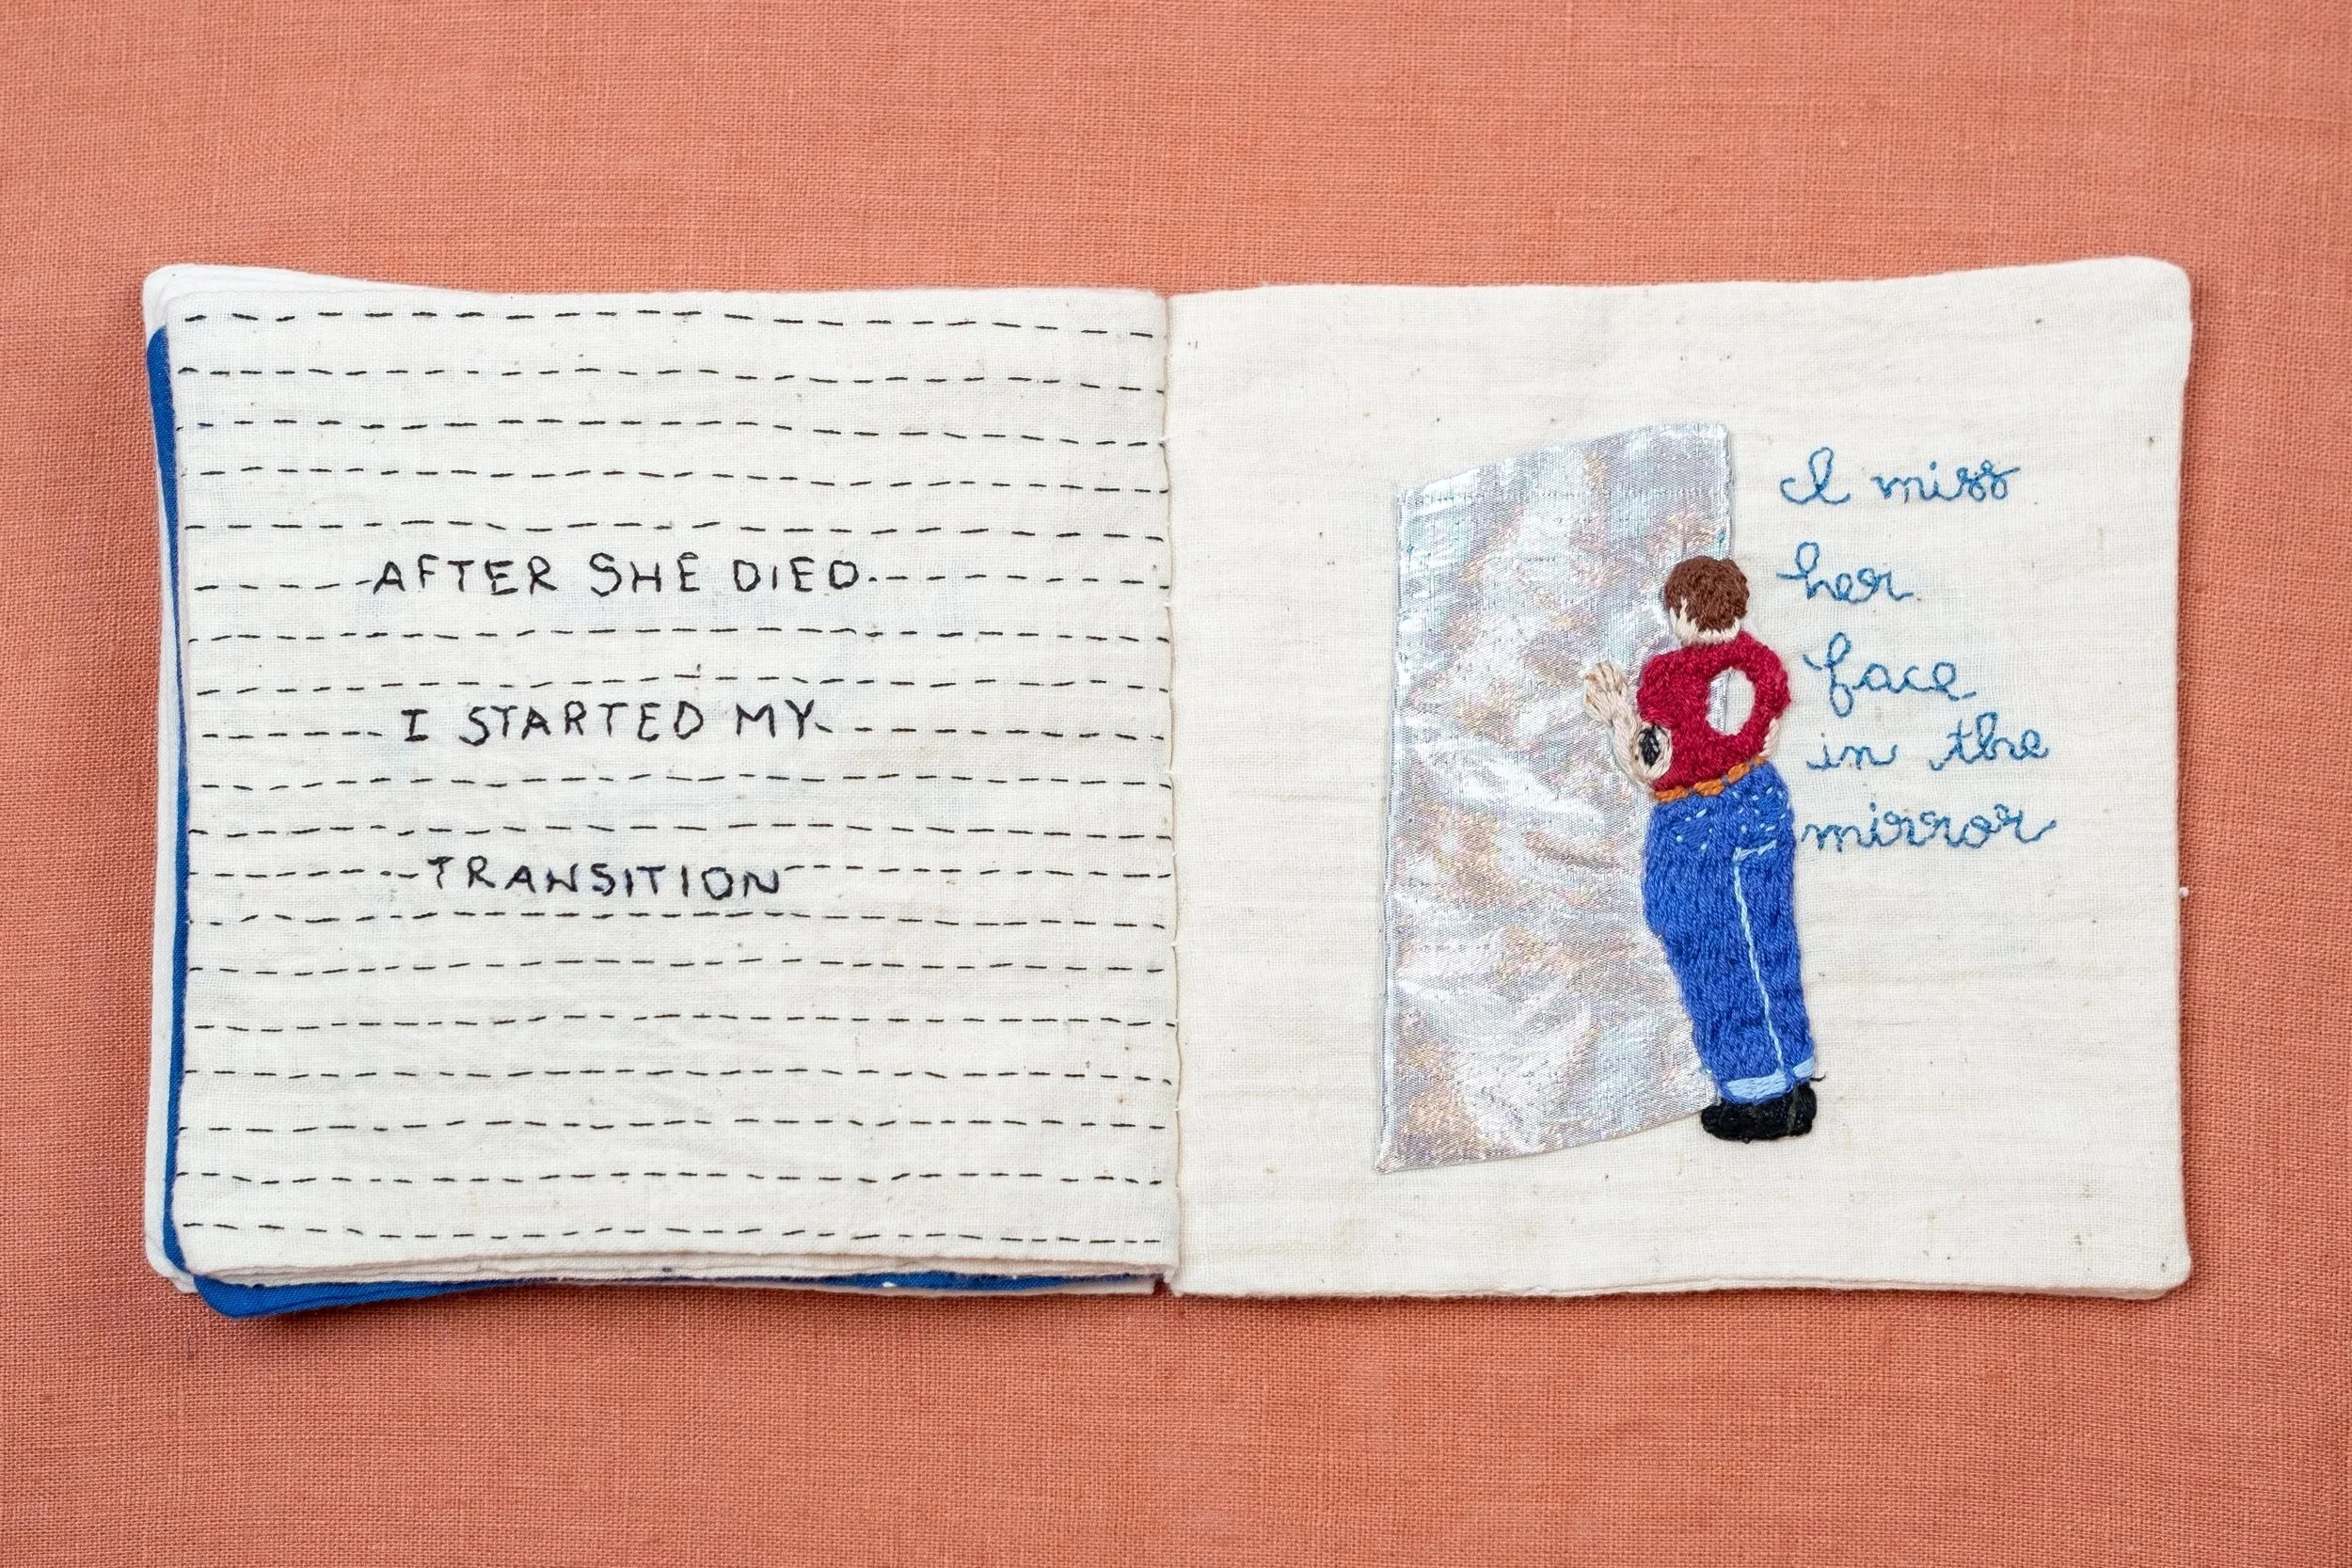 AFTER SHE DIED
I STARTED MY
TRANSITION
I miss
her
face
in the
mirror